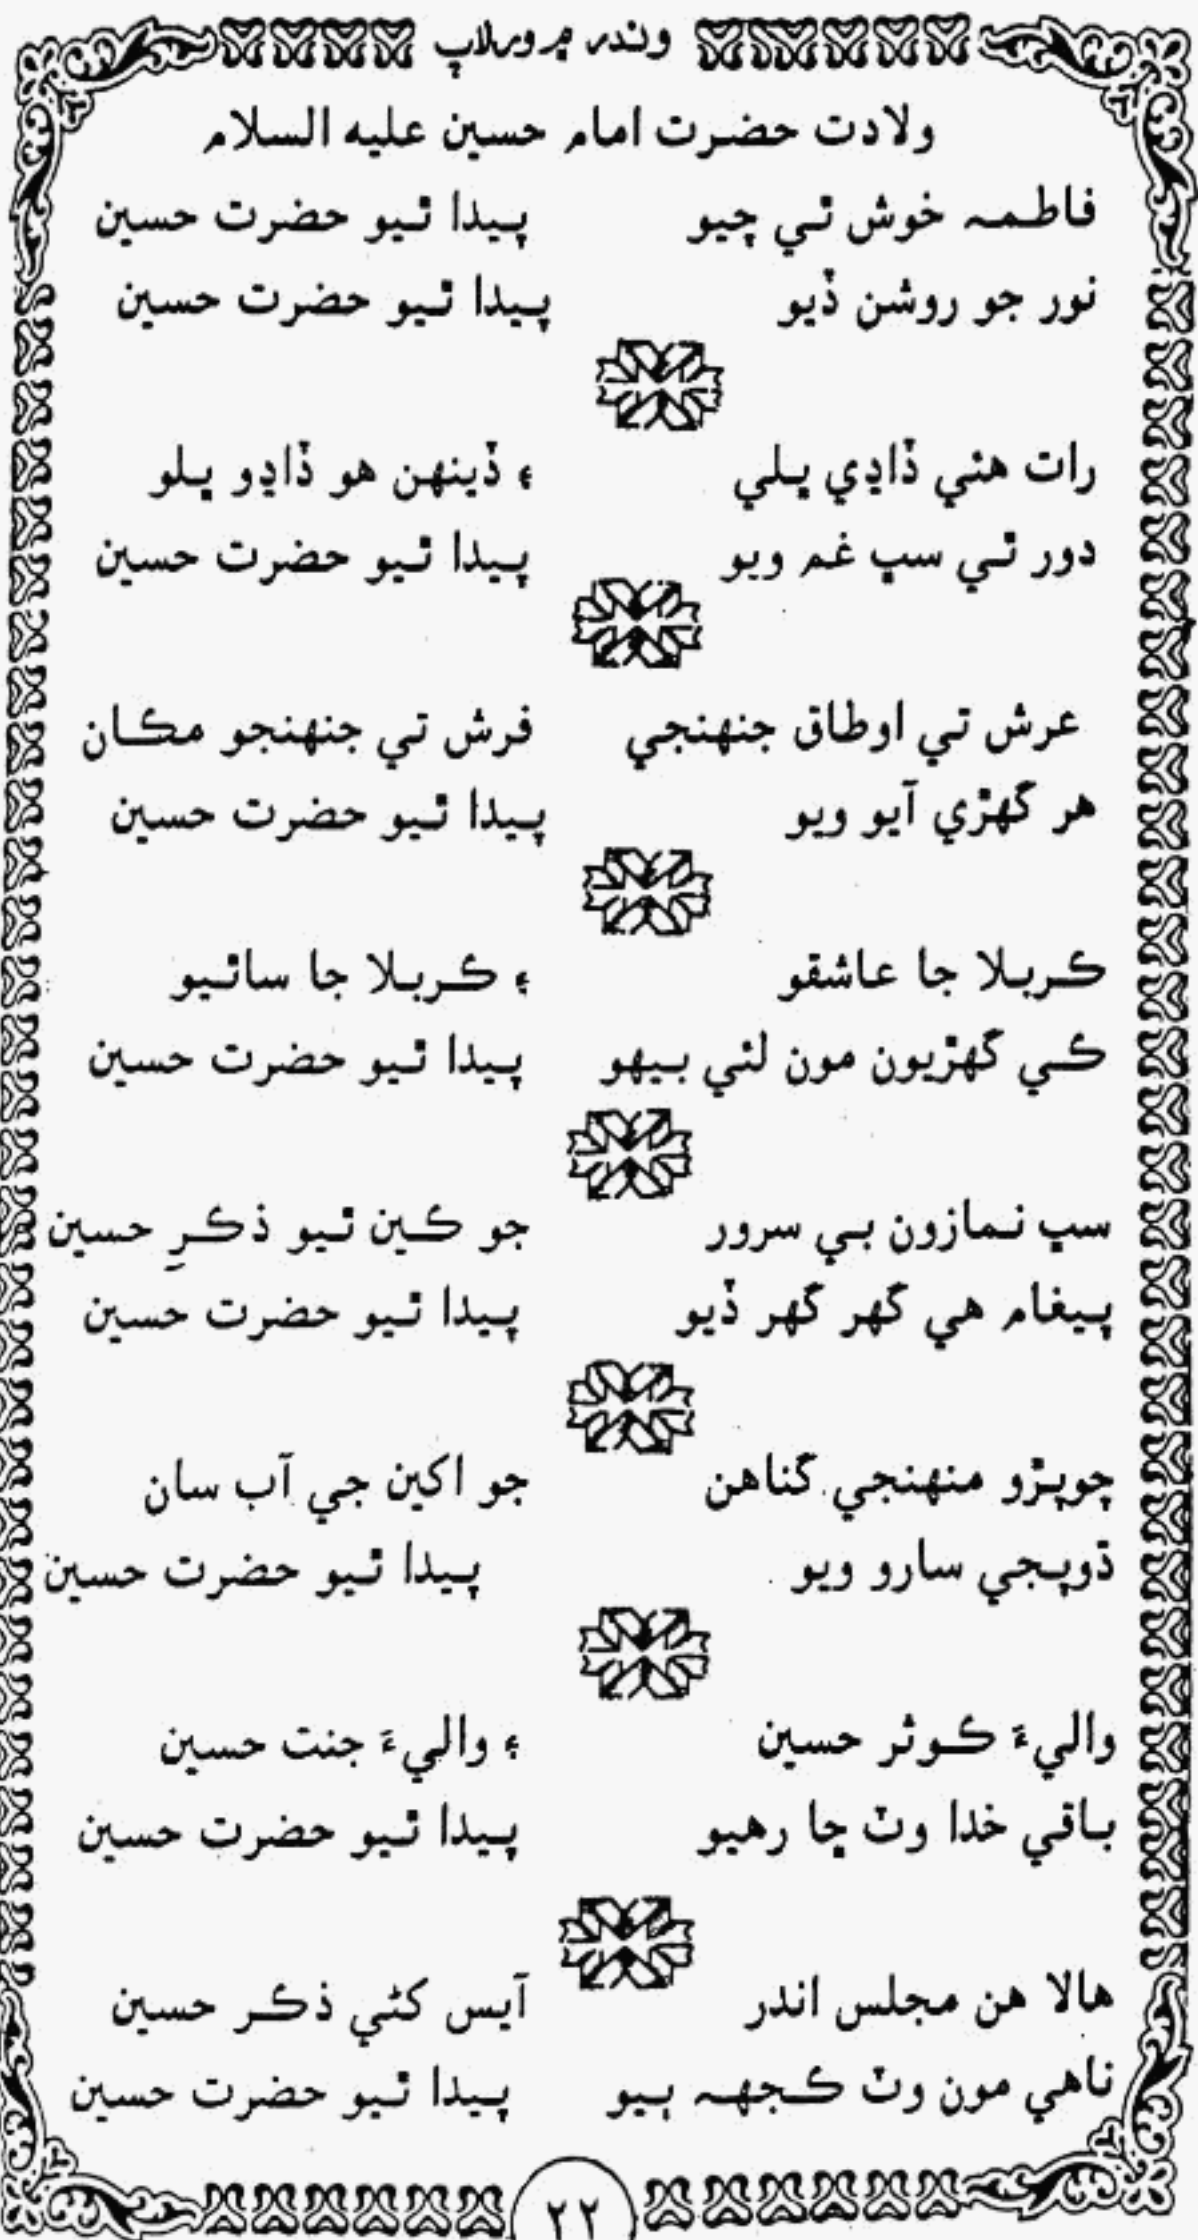 وندر ۾ ورلاپ
ولادت حضرت امام حسين عليه السلام
فاطمہ خوش ٿي چيو پيدا ٿيو حضرت حسين
نور جو روشن ڏيو پيدا ٿيو حضرت حسين
رات هئي ڏاڍي ڀلي ۽ ڏينهن هو ڏاڍو ڀلو
دور ٿي سڀ غم ويو پيدا ٿيو حضرت حسين
عرش تي اوطاق جنهنجي فرش تي جنهنجو مڪان
هر گهڙي آيو ويو پيدا ٿيو حضرت حسين
ڪربلا جا عاشقو ۽ ڪربلا جا ساٿيو
ڪي گهڙيون مون لئي بيهو پيدا ٿيو حضرت حسين
سڀ نمازون بي سرور جو ڪين ٿيو ذڪرِ حسين
پيغام هي گهر گهر ڏيو پيدا ٿيو حضرت حسين
چوپڙو منهنجي گناهن جو اکين جي آب سان
ڌوپجي سارو ويو پيدا ٿيو حضرت حسين
واليءَ ڪوثر حسين ۽ واليءَ جنت حسين
باقي خدا وٽ ڇا رهيو پيدا ٿيو حضرت حسين
هالا هن مجلس اندر آيس کڻي ذڪر حسين
ناهي مون وٽ ڪجهہ ٻيو پيدا ٿيو حضرت حسين
۲۲